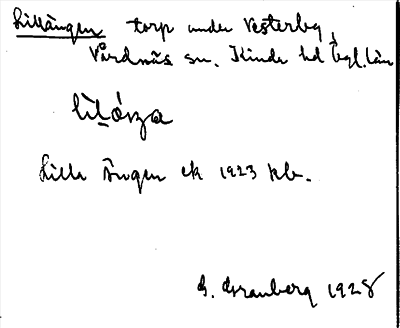 Lillängen torp under Vesterby,
Vårdnäs sn. Kinda hd Ögl. län
Lilla Ängen ek 1923 kb.
G. Granberg 1928